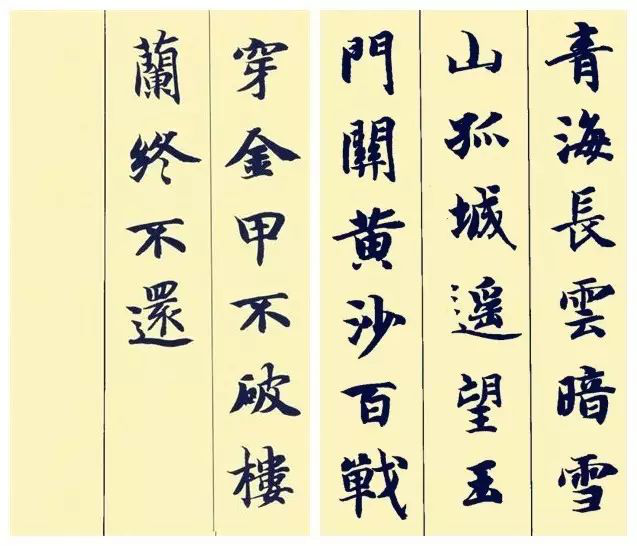 青海長雲暗雪
山孤城遥望玉
門關黄沙百戦
穿金甲不破樓
蘭終不還